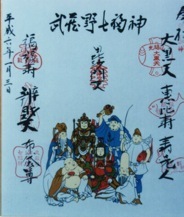 武蔵野七福神
大黒天
恵比寿
寿老人
毘沙門天
福禄寿
辨財天
布袋尊
平成六年一月三日